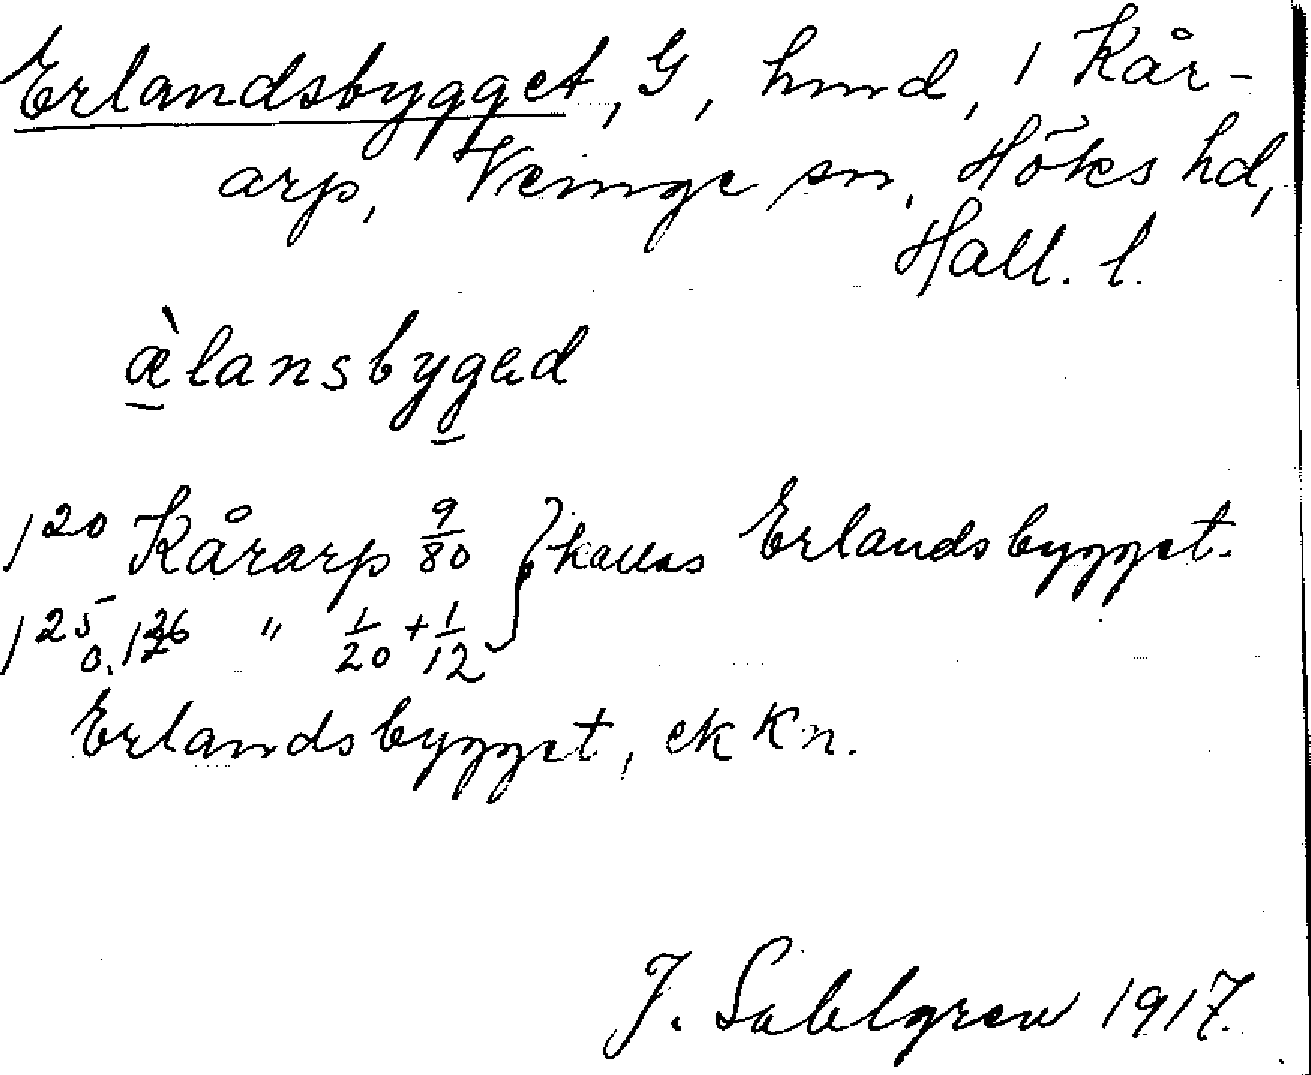 Erlandsbygget, G, hmd, 1 Kår-
arp, Veinge sn, Höks hd,
Hall. l.
æ̀lansbygəd
1²⁰ Kårarp 9/80 } kallas Erlandsbygget.
1²⁵ o. 1²⁶ " 1/20 + 1/12
Erlandsbygget, ek Kn.
J. Sahlgren 1917.